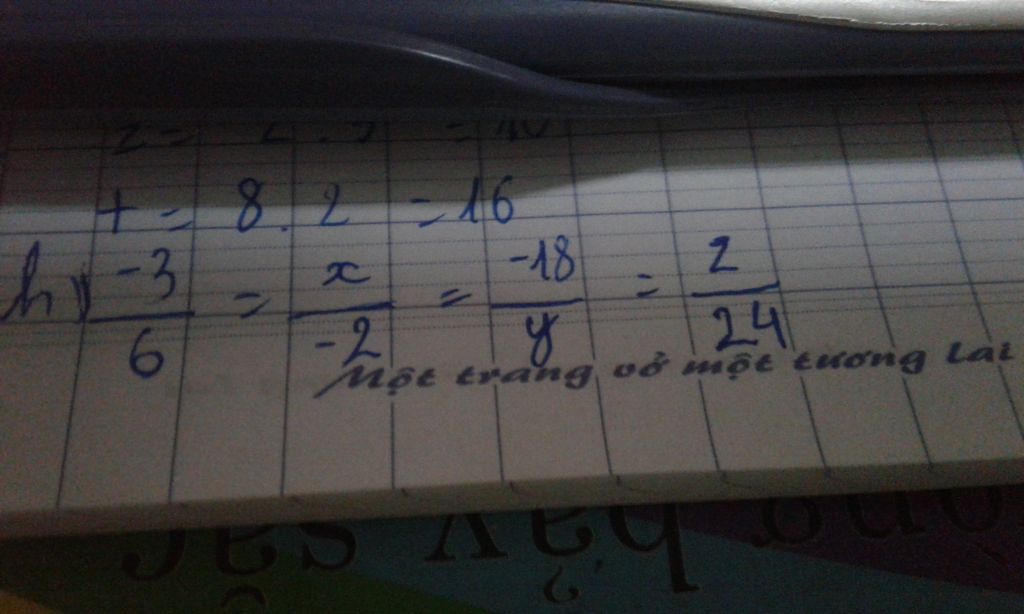 t = 8 . 2 = 16
h) -3/6 = x/-2 = -18/y = z/24
Một trang vở một tương lai
bảy sắc